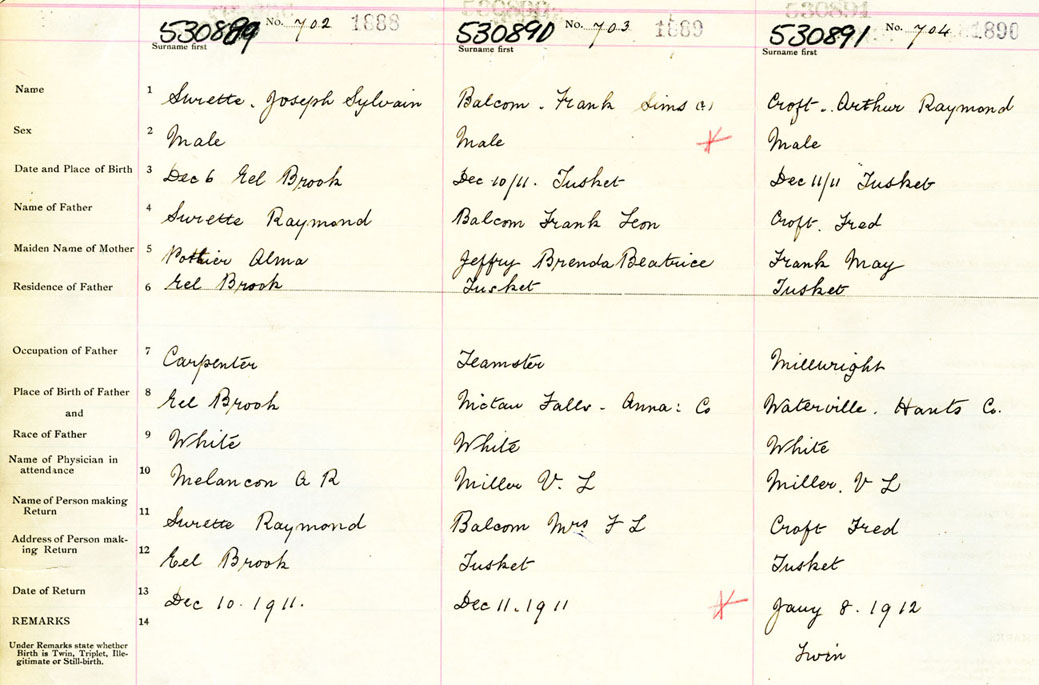 530889 No. 702 1888 530890 No. 703 1889 530891 No. 704 1890
Surname first Surname first Surname first
Name 1 Surette. Joseph Sylvain Balcom - Frank Sims Croft. Arthur Raymond
Sex 2 Male Male Male
Date and Place of Birth 3 Dec 6 Eel Brook Dec 10/11. Tusket Dec 11/11 Tusket
Name of Father 4 Surette Raymond Balcom Frank Leon Croft. Fred
Maiden Name of Mother 5 Pottier Alma Jeffry Brenda Beatrice Frank May
Residence of Father 6 Eel Brook Tusket Tusket
Occupation of Father 7 Carpenter Teamster Millwright
Place of Birth of Father 8 Eel Brook Nictau Falls - Anna: Co Waterville. Hants Co.
and
Race of Father 9 White White White
Name of Physician in
attendance 10 Melancon A R Miller V. L Miller. V L
Name of Person making
Return 11 Surette Raymond Balcom Mrs F L Croft Fred
Address of Person mak-
ing Return 12 Eel Brook Tusket Tusket
Date of Return 13 Dec 10. 1911. Dec 11. 1911 Jany 8. 1912
REMARKS 14
Under Remarks state whether
Birth is Twin, Triplet, Ille-
gitimate or Still-birth. Twin